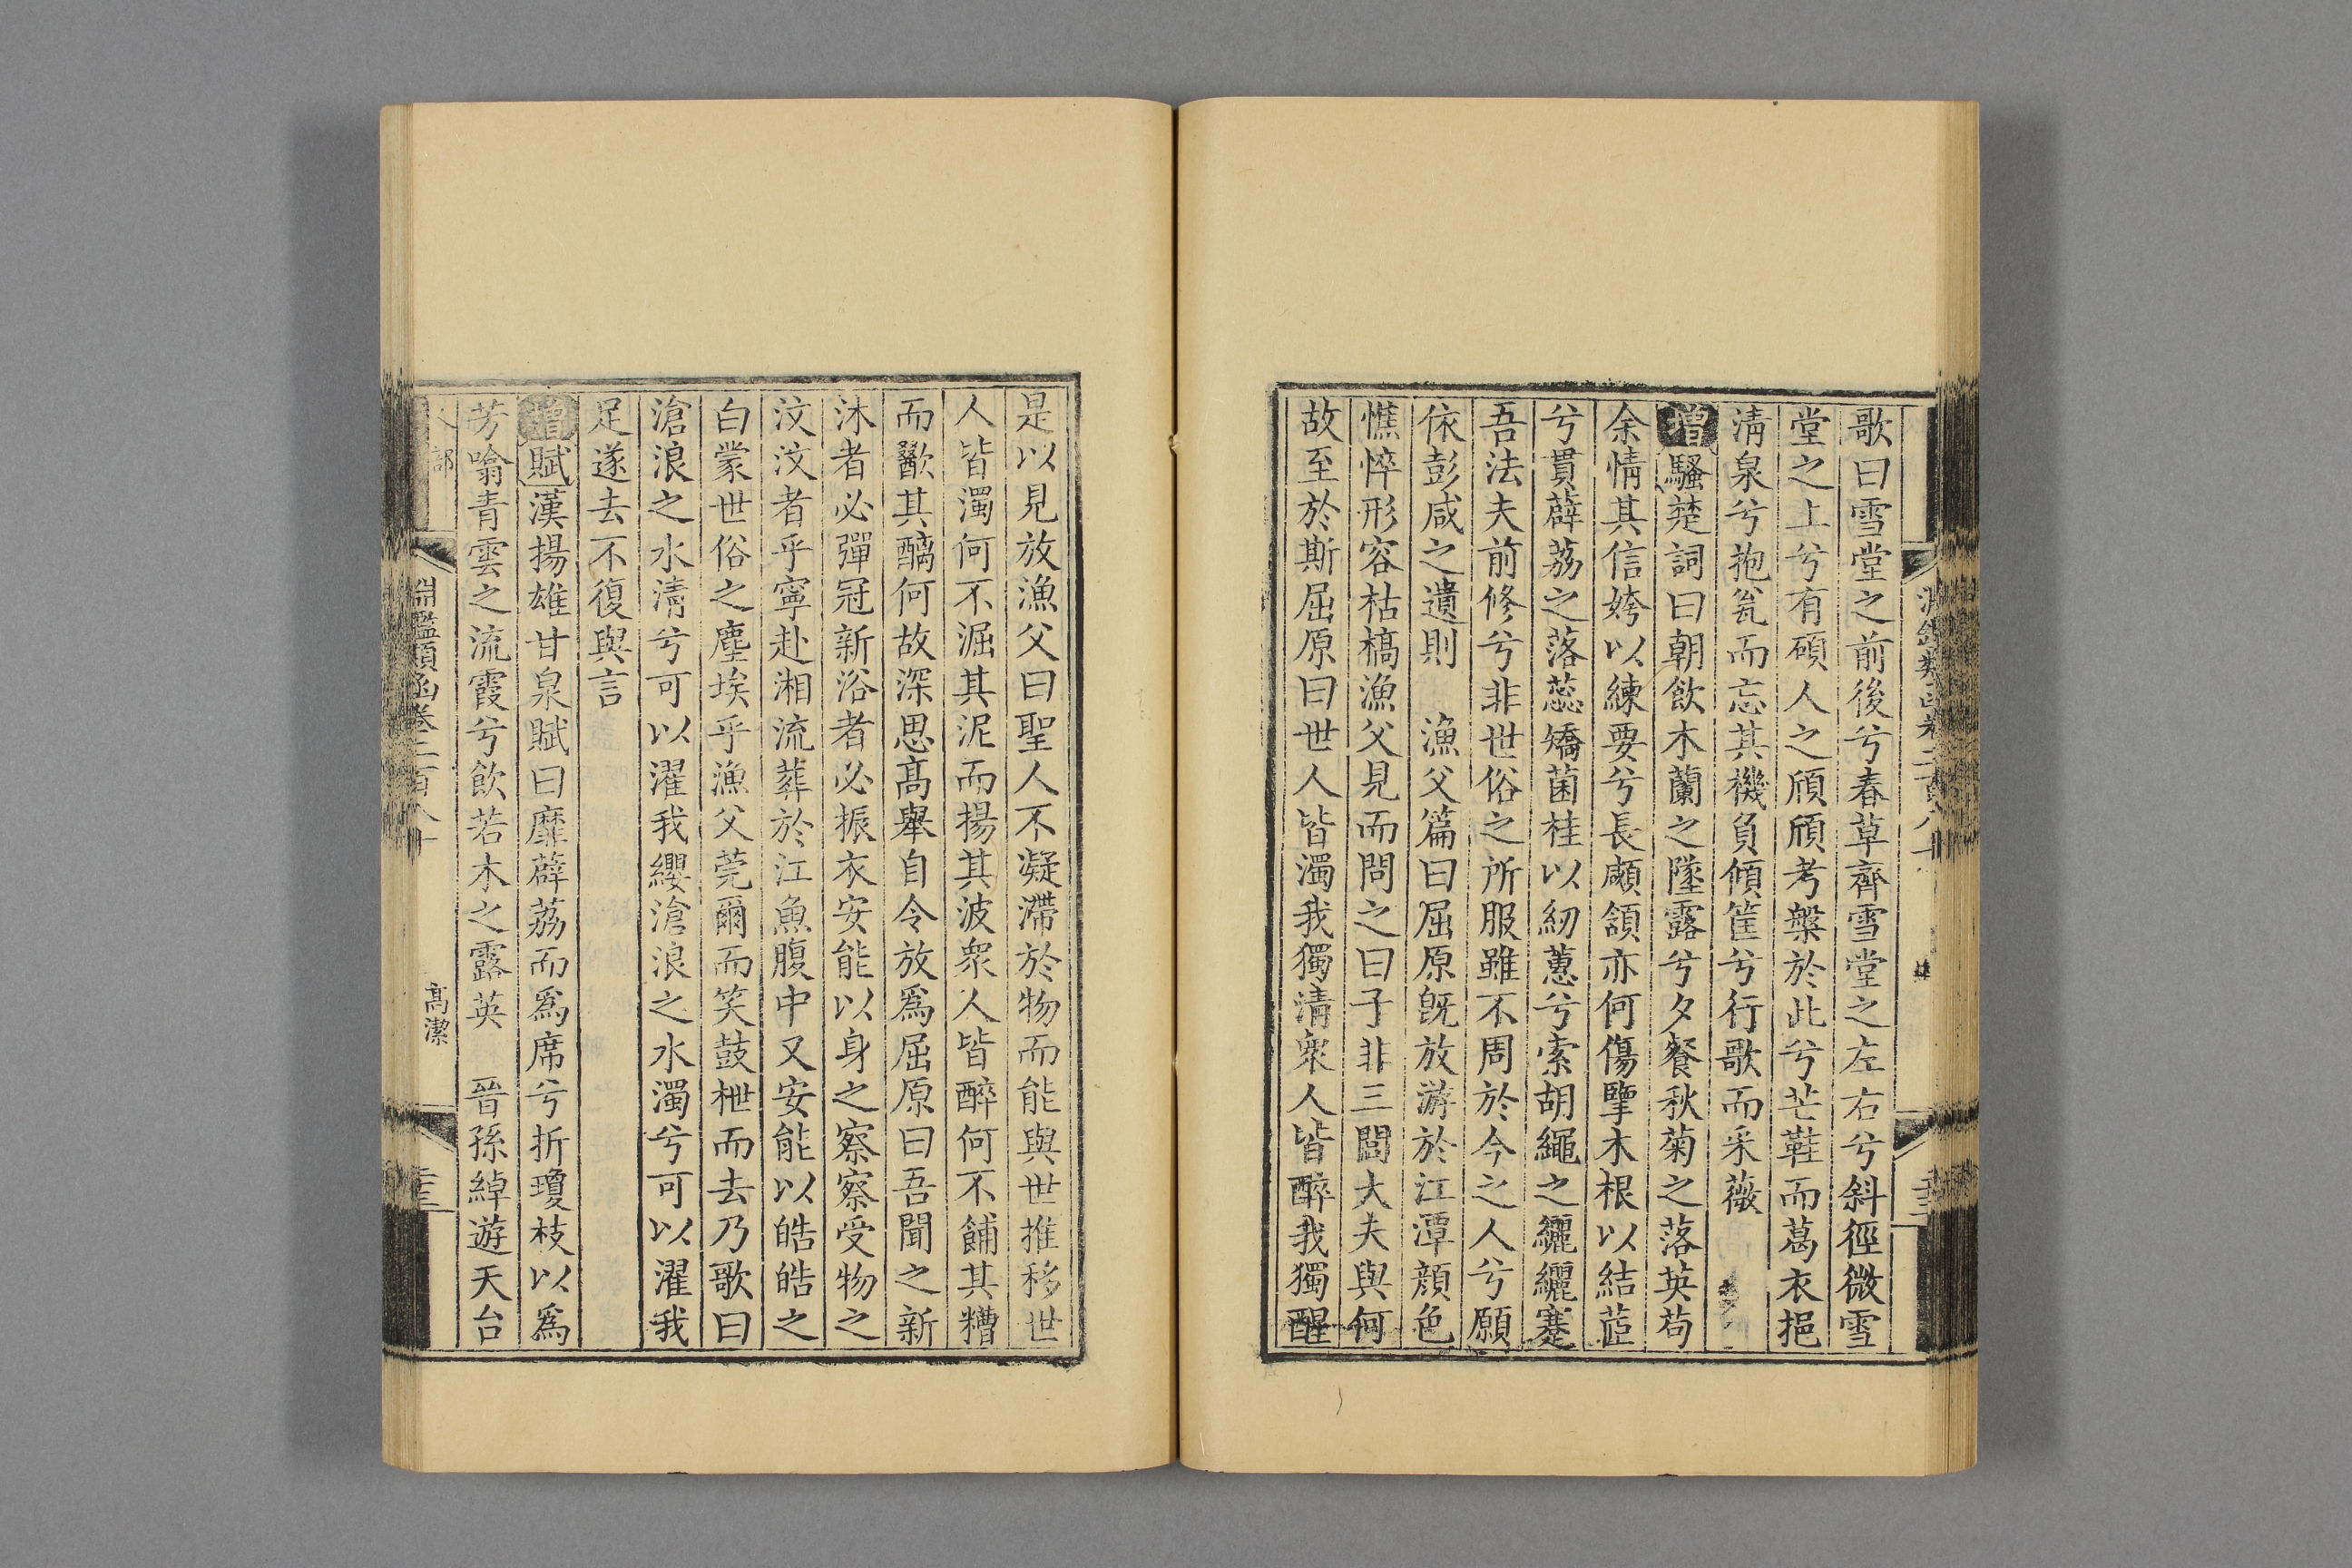 歌曰雪堂之前後兮春草齊雪堂之左右兮斜徑微雪
堂之上兮有碩人之頎頎考槃於此兮芒鞋而葛衣挹
淸泉兮抱瓮而忘其機負傾筐兮行歌而采薇
增騷楚詞曰朝飲木蘭之墜露兮夕餐秋菊之落英苟
余情其信姱以練要兮長顑頷亦何傷擥木根以結茝
兮貫薜荔之落蕊矯菌桂以紉蕙兮索胡繩之纚纚謇
吾法夫前修兮非世俗之所服雖不周於今之人兮願
依彭咸之遺則　漁父篇曰屈原旣放游於江潭顔色
憔悴形容枯槁漁父見而問之曰子非三閭大夫與何
故至於斯屈原曰世人皆濁我獨淸衆人皆醉我獨醒
是以見放漁父曰聖人不凝滯於物而能與世推移世
人皆濁何不淈其泥而揚其波衆人皆醉何不餔其糟
而歠其醨何故深思高舉自令放爲屈原曰吾聞之新
沐者必彈冠新浴者必振衣安能以身之察察受物之
汶汶者乎寧赴湘流葬於江魚腹中又安能以皓皓之
白蒙世俗之塵埃乎漁父莞爾而笑鼓枻而去乃歌曰
滄浪之水淸兮可以濯我纓滄浪之水濁兮可以濯我
足遂去不復與言
增賦漢揚雄甘泉賦曰靡薜荔而爲席兮折瓊枝以爲
芳噏青雲之流霞兮飲若木之露英　晉孫綽遊天台
淵鑑類函卷二百八十
高潔